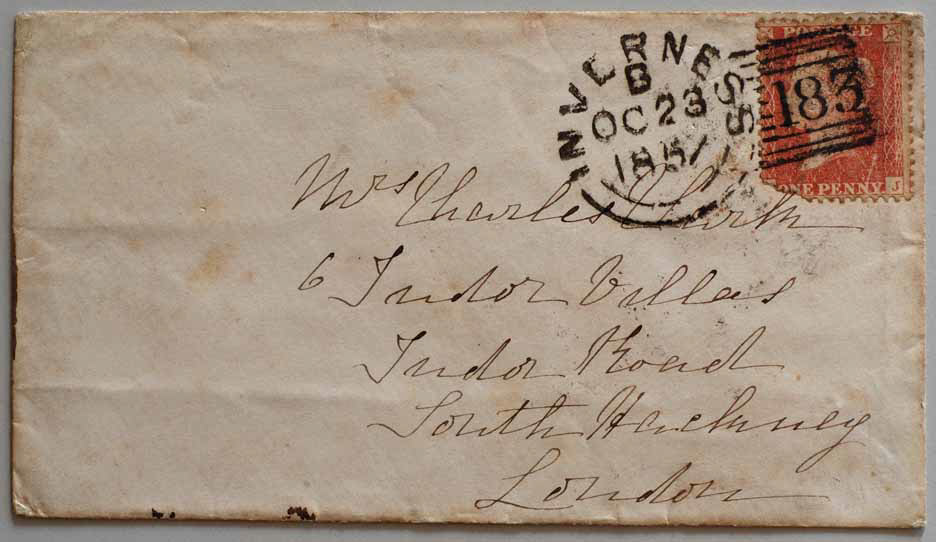 INVERNESS
B
OC 23
POSTAGE
183
ONE PENNY J
Mrs Charles
6 Tudor Villas
Tudor Road
South Hackney
London